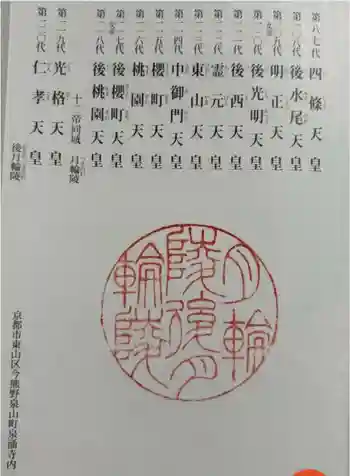 第八七代 四條天皇
第一〇八代 後水尾天皇
第一〇九代 明正天皇
女帝
第一一〇代 後光明天皇
第一一一代 後西天皇
第一一二代 霊元天皇
第一一三代 東山天皇
第一一四代 中御門天皇
第一一五代 櫻町天皇
第一一六代 桃園天皇
第一一七代 後櫻町天皇
女帝
第一一八代 後桃園天皇
十二帝同域 月輪陵
第一一九代 光格天皇
第一二〇代 仁孝天皇
後月輪陵
月輪
陵後月
輪陵
京都市東山区今熊野泉山町泉涌寺内